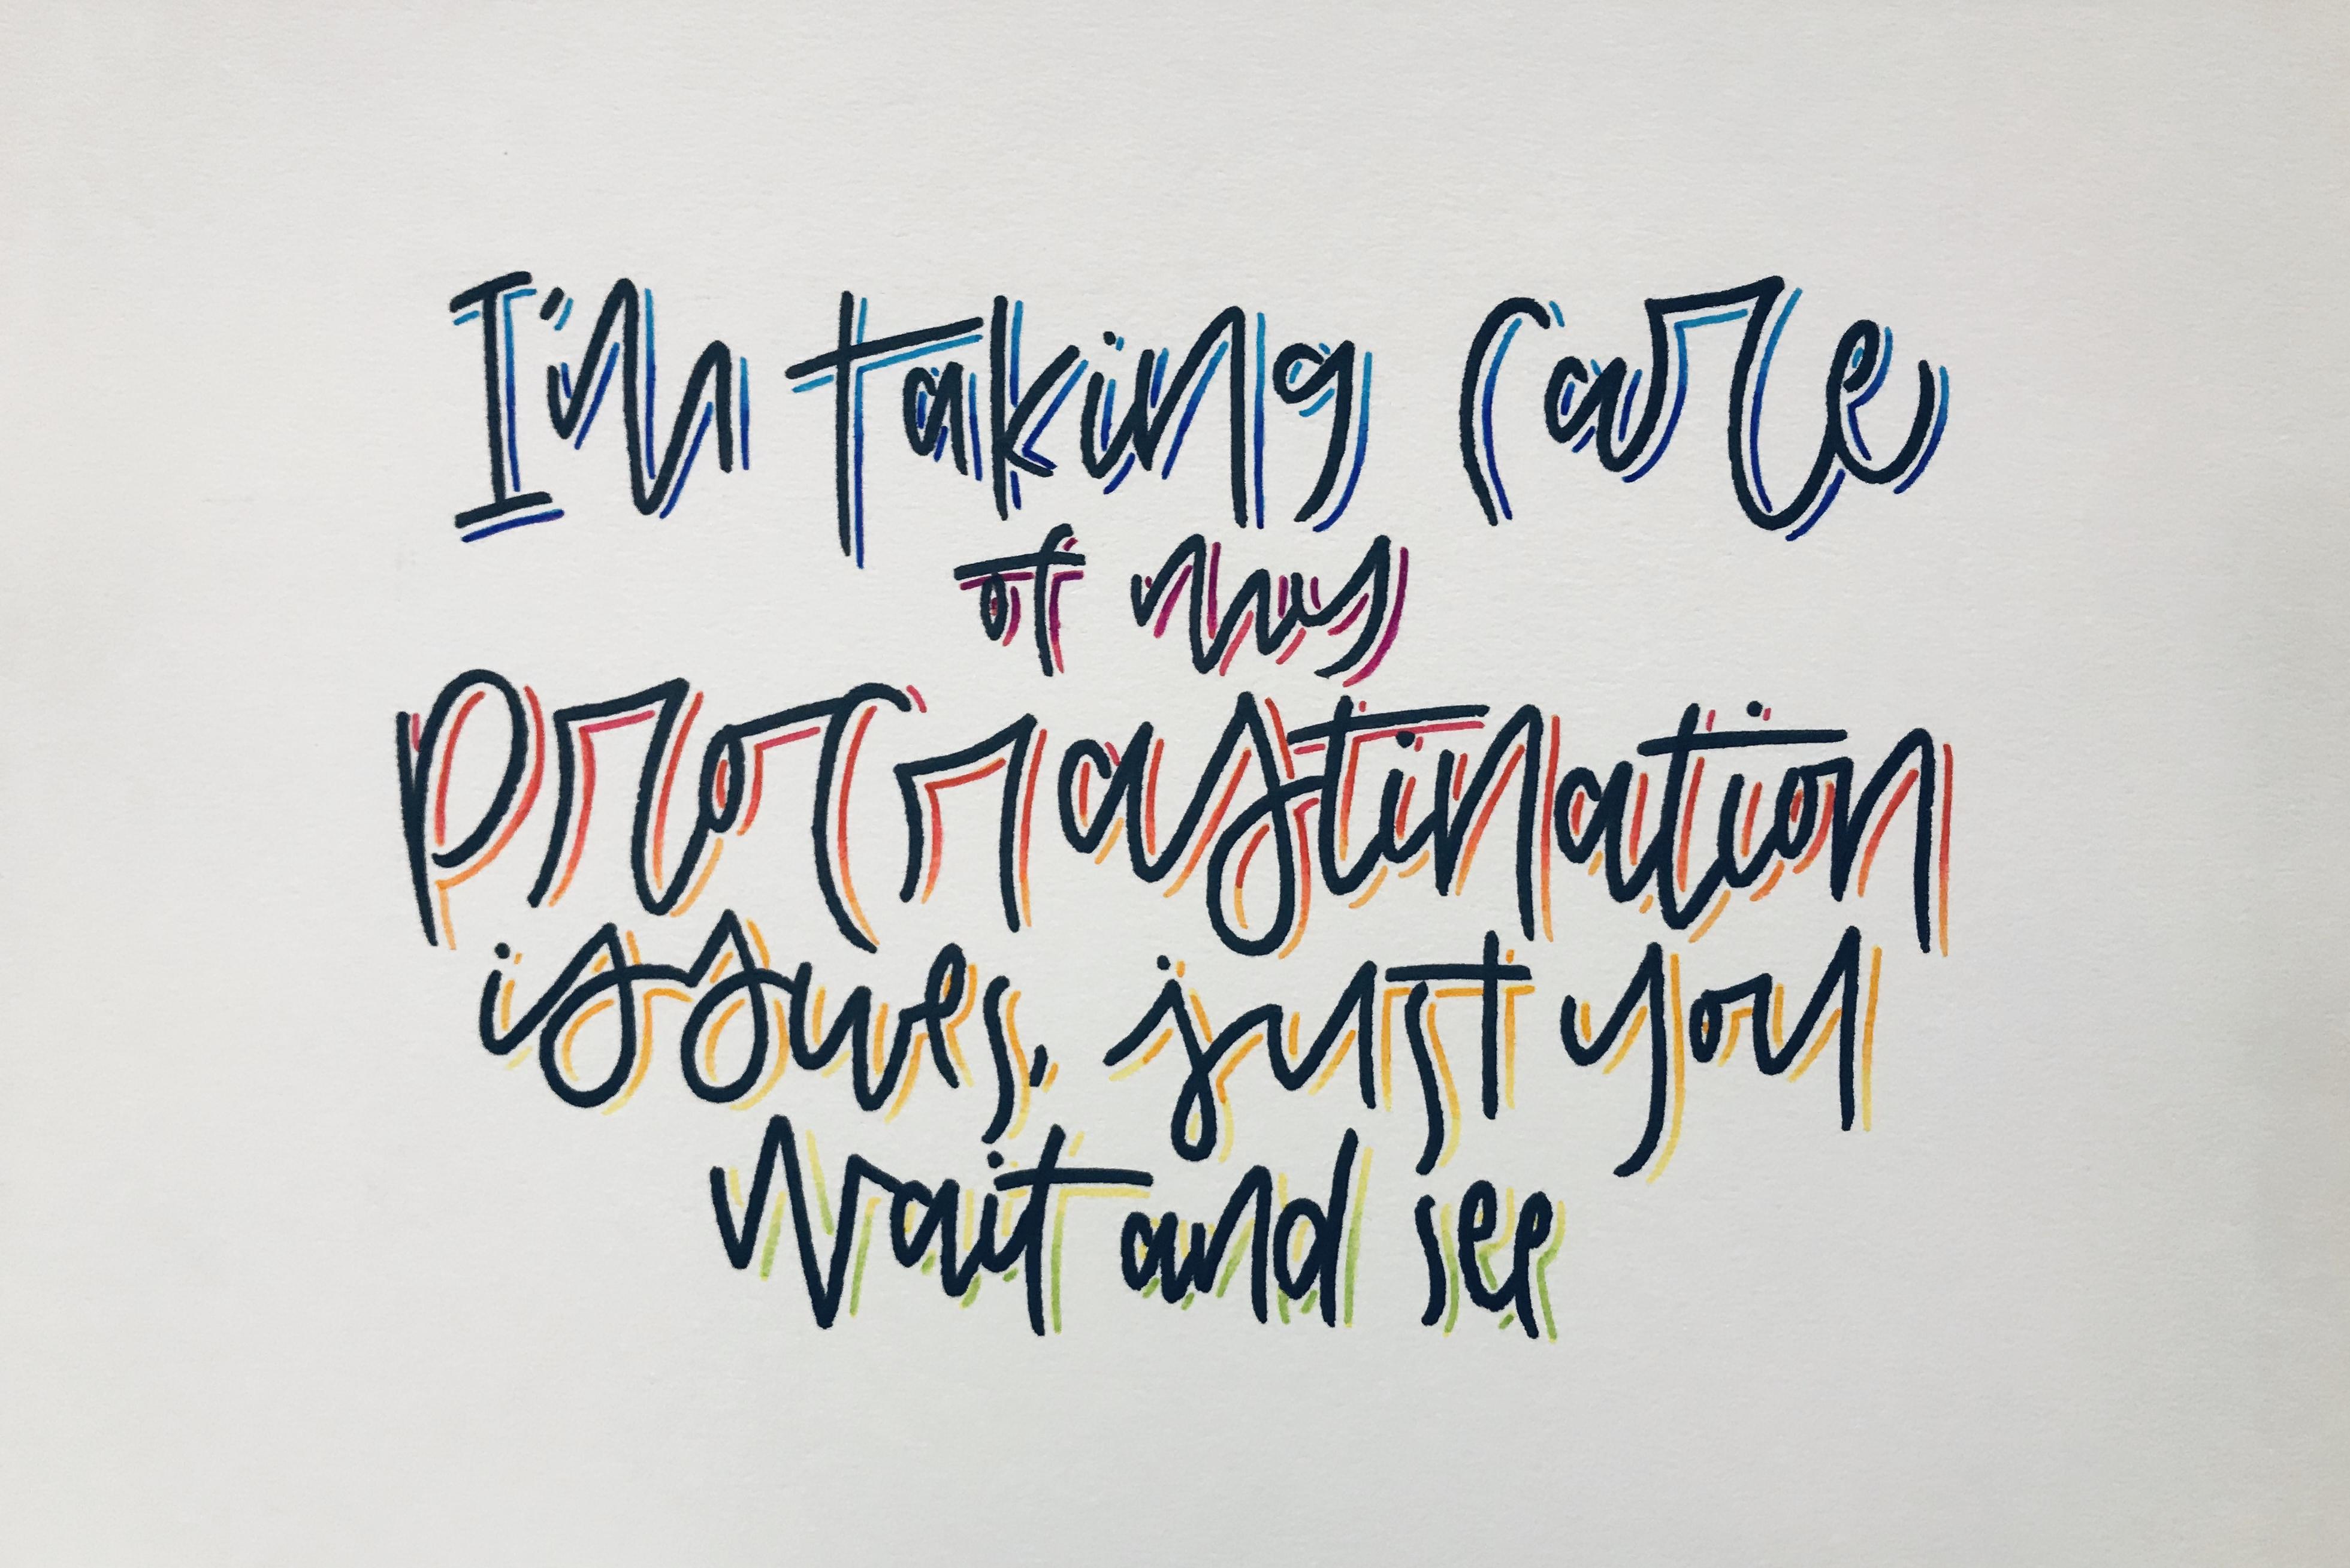 I'm taking care
of my
procrastination
issues, just you
wait and see